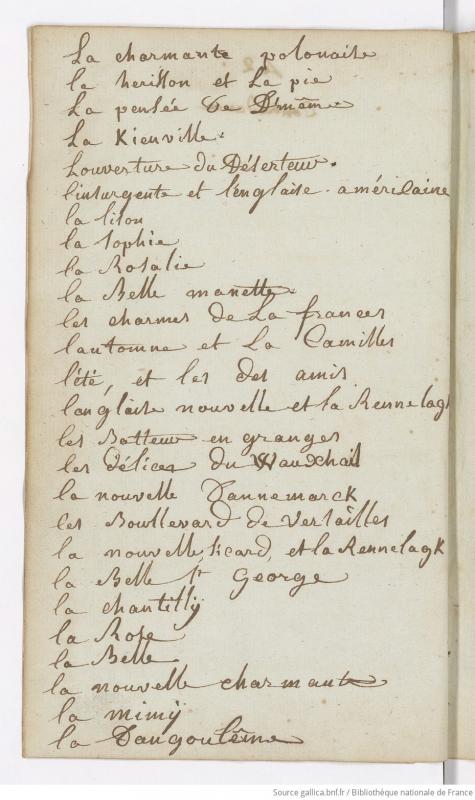 La charmante polonaise
la herisson et La pie
La pensée de D'mâme
La Kieuville.
Louverture du Déserteur.
l'insurgente et l'englaise. américaine
la lison
la sophie
la Rosalie
la Belle manette
les charmes de La frances
lautomne et La Camilles
l'été, et les des amis
langlaise nouvelle et la Rennelagk
les Batteur en granges
les délices du Wauxhall
la nouvelle Dannemarck
les Boullevard de Versailles
la nouvelle sicard, et la Rennelagk
la Belle st George
la chantillÿ
la Rose
la Belle
la nouvelle charmante
la mimÿ
la Dangoulême
Source gallica.bnf.fr / Bibliothèque nationale de France